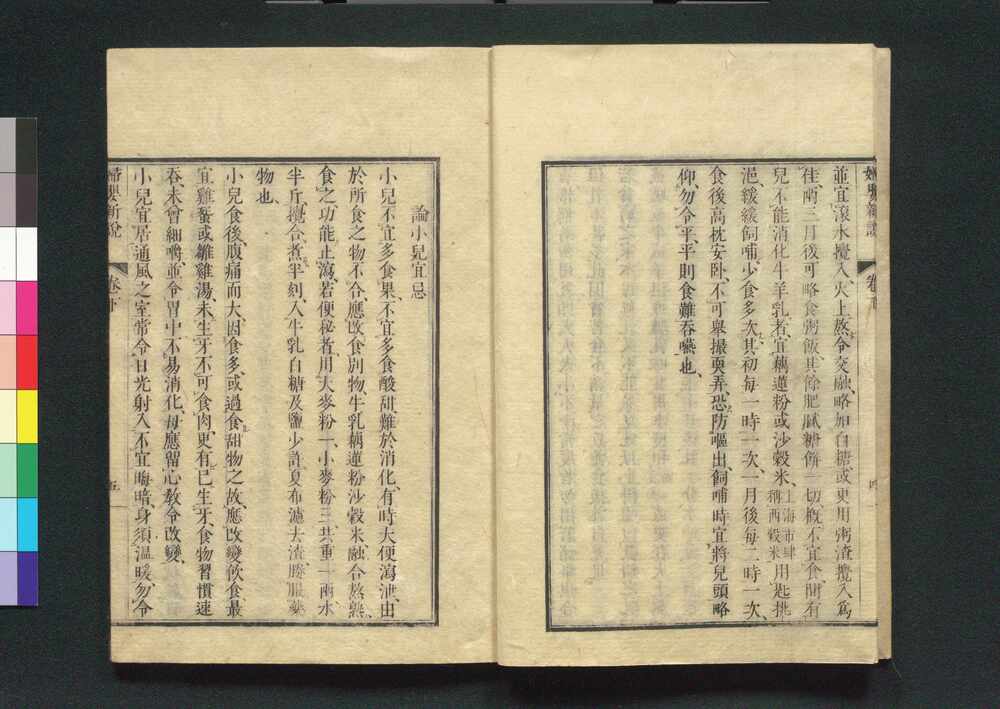 婦嬰新說 卷下 四
並宜滾水攪入、火上熬令交融、略加白糖或更用粥渣攪入爲
佳、兩三月後可略食粥飯、其餘肥膩糖餅一切概不宜食、間有
兒不能消化牛羊乳者、宜藕蓮粉或沙穀米、上海市肆稱西穀米用匙挑
浥緩緩飼哺、少食多次、其初每一時一次、一月後每二時一次、
食後高枕安卧、不可舉撮耎弄、恐防嘔出、飼哺時宜將兒頭略
仰、勿令平、平則食難吞嚥也、
論小兒宜忌
小兒不宜多食果、不宜多食酸甜難於消化、有時大便瀉泄、由
於所食之物不合、應改食別物、牛乳藕蓮粉沙穀米融合熬熟、
食之功能止瀉、若便秘者、用大麥粉一、小麥粉三、共重一兩、水
半斤、攪合煮半刻、入牛乳白糖及鹽少許、夏布濾去渣、勝服藥
物也、
小兒食後、腹痛而大、因食多、或過食甜物之故、應改變飲食、最
宜雞蛋或雛雞湯、未生牙不可食肉、更有已生牙、食物習慣速
吞、未曾細嚼、並令胃中不易消化、每應留心教令改變、
小兒宜居通風之室、常令日光射入、不宜晦暗、身須溫暖、勿令
婦嬰新說 卷下 五